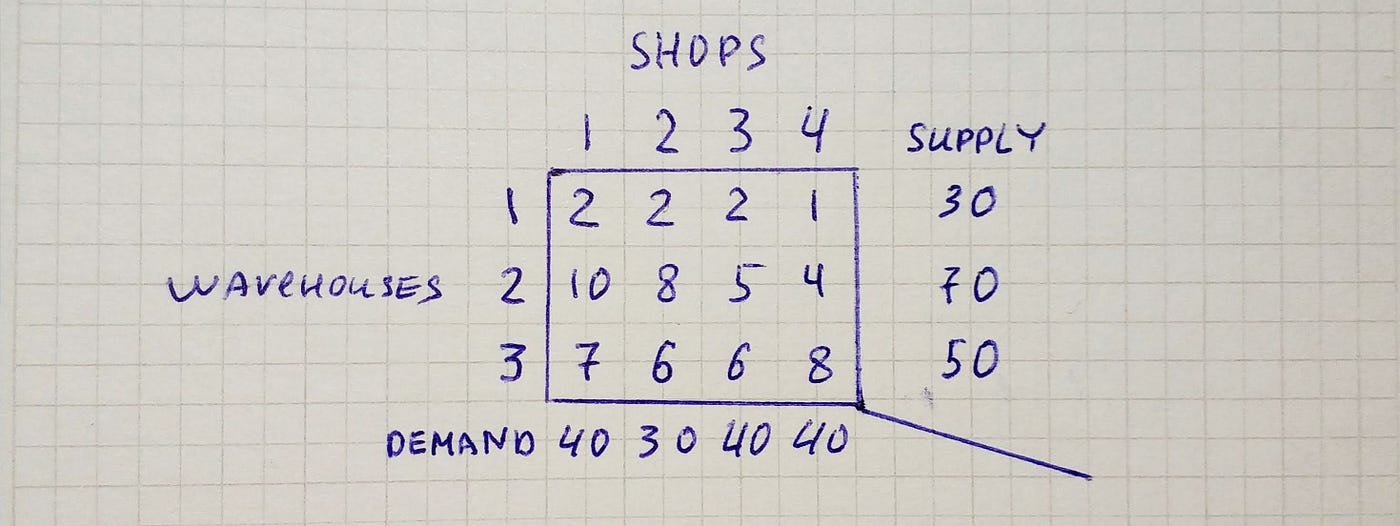 SHOPS
1 2 3 4 SUPPLY
1 2 2 2 1 30
WAREHOUSES 2 10 8 5 4 70
3 7 6 6 8 50
DEMAND 40 30 40 40